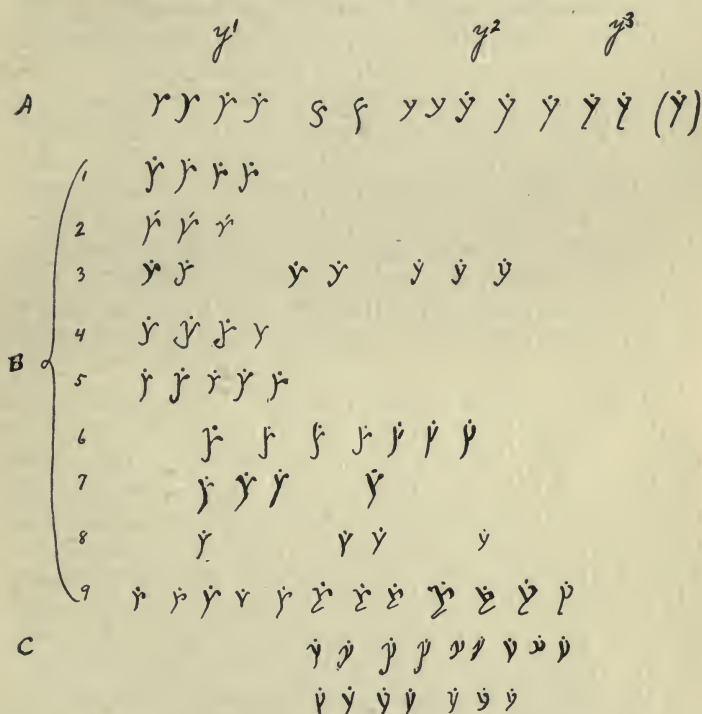 y¹ y² y³
A y y ẏ ẏ y y y y ẏ ẏ ẏ ẏ ẏ (ẏ)
1 ẏ ẏ ẏ ẏ
2 ý ý ý
3 ẏ ẏ ẏ ẏ ẏ ẏ ẏ
4 ẏ ẏ ẏ y
B
5 ẏ ẏ ẏ ẏ ẏ
6 ẏ ẏ ẏ ẏ ẏ ẏ ẏ
7 ẏ ẏ ẏ ẏ
8 ẏ ẏ ẏ ẏ
9 ẏ ẏ ẏ ẏ ẏ ẏ ẏ ẏ ẏ ẏ ẏ ẏ
C ẏ ẏ ẏ ẏ ẏ ẏ ẏ ẏ ẏ
ẏ ẏ ẏ ẏ ẏ ẏ ẏ